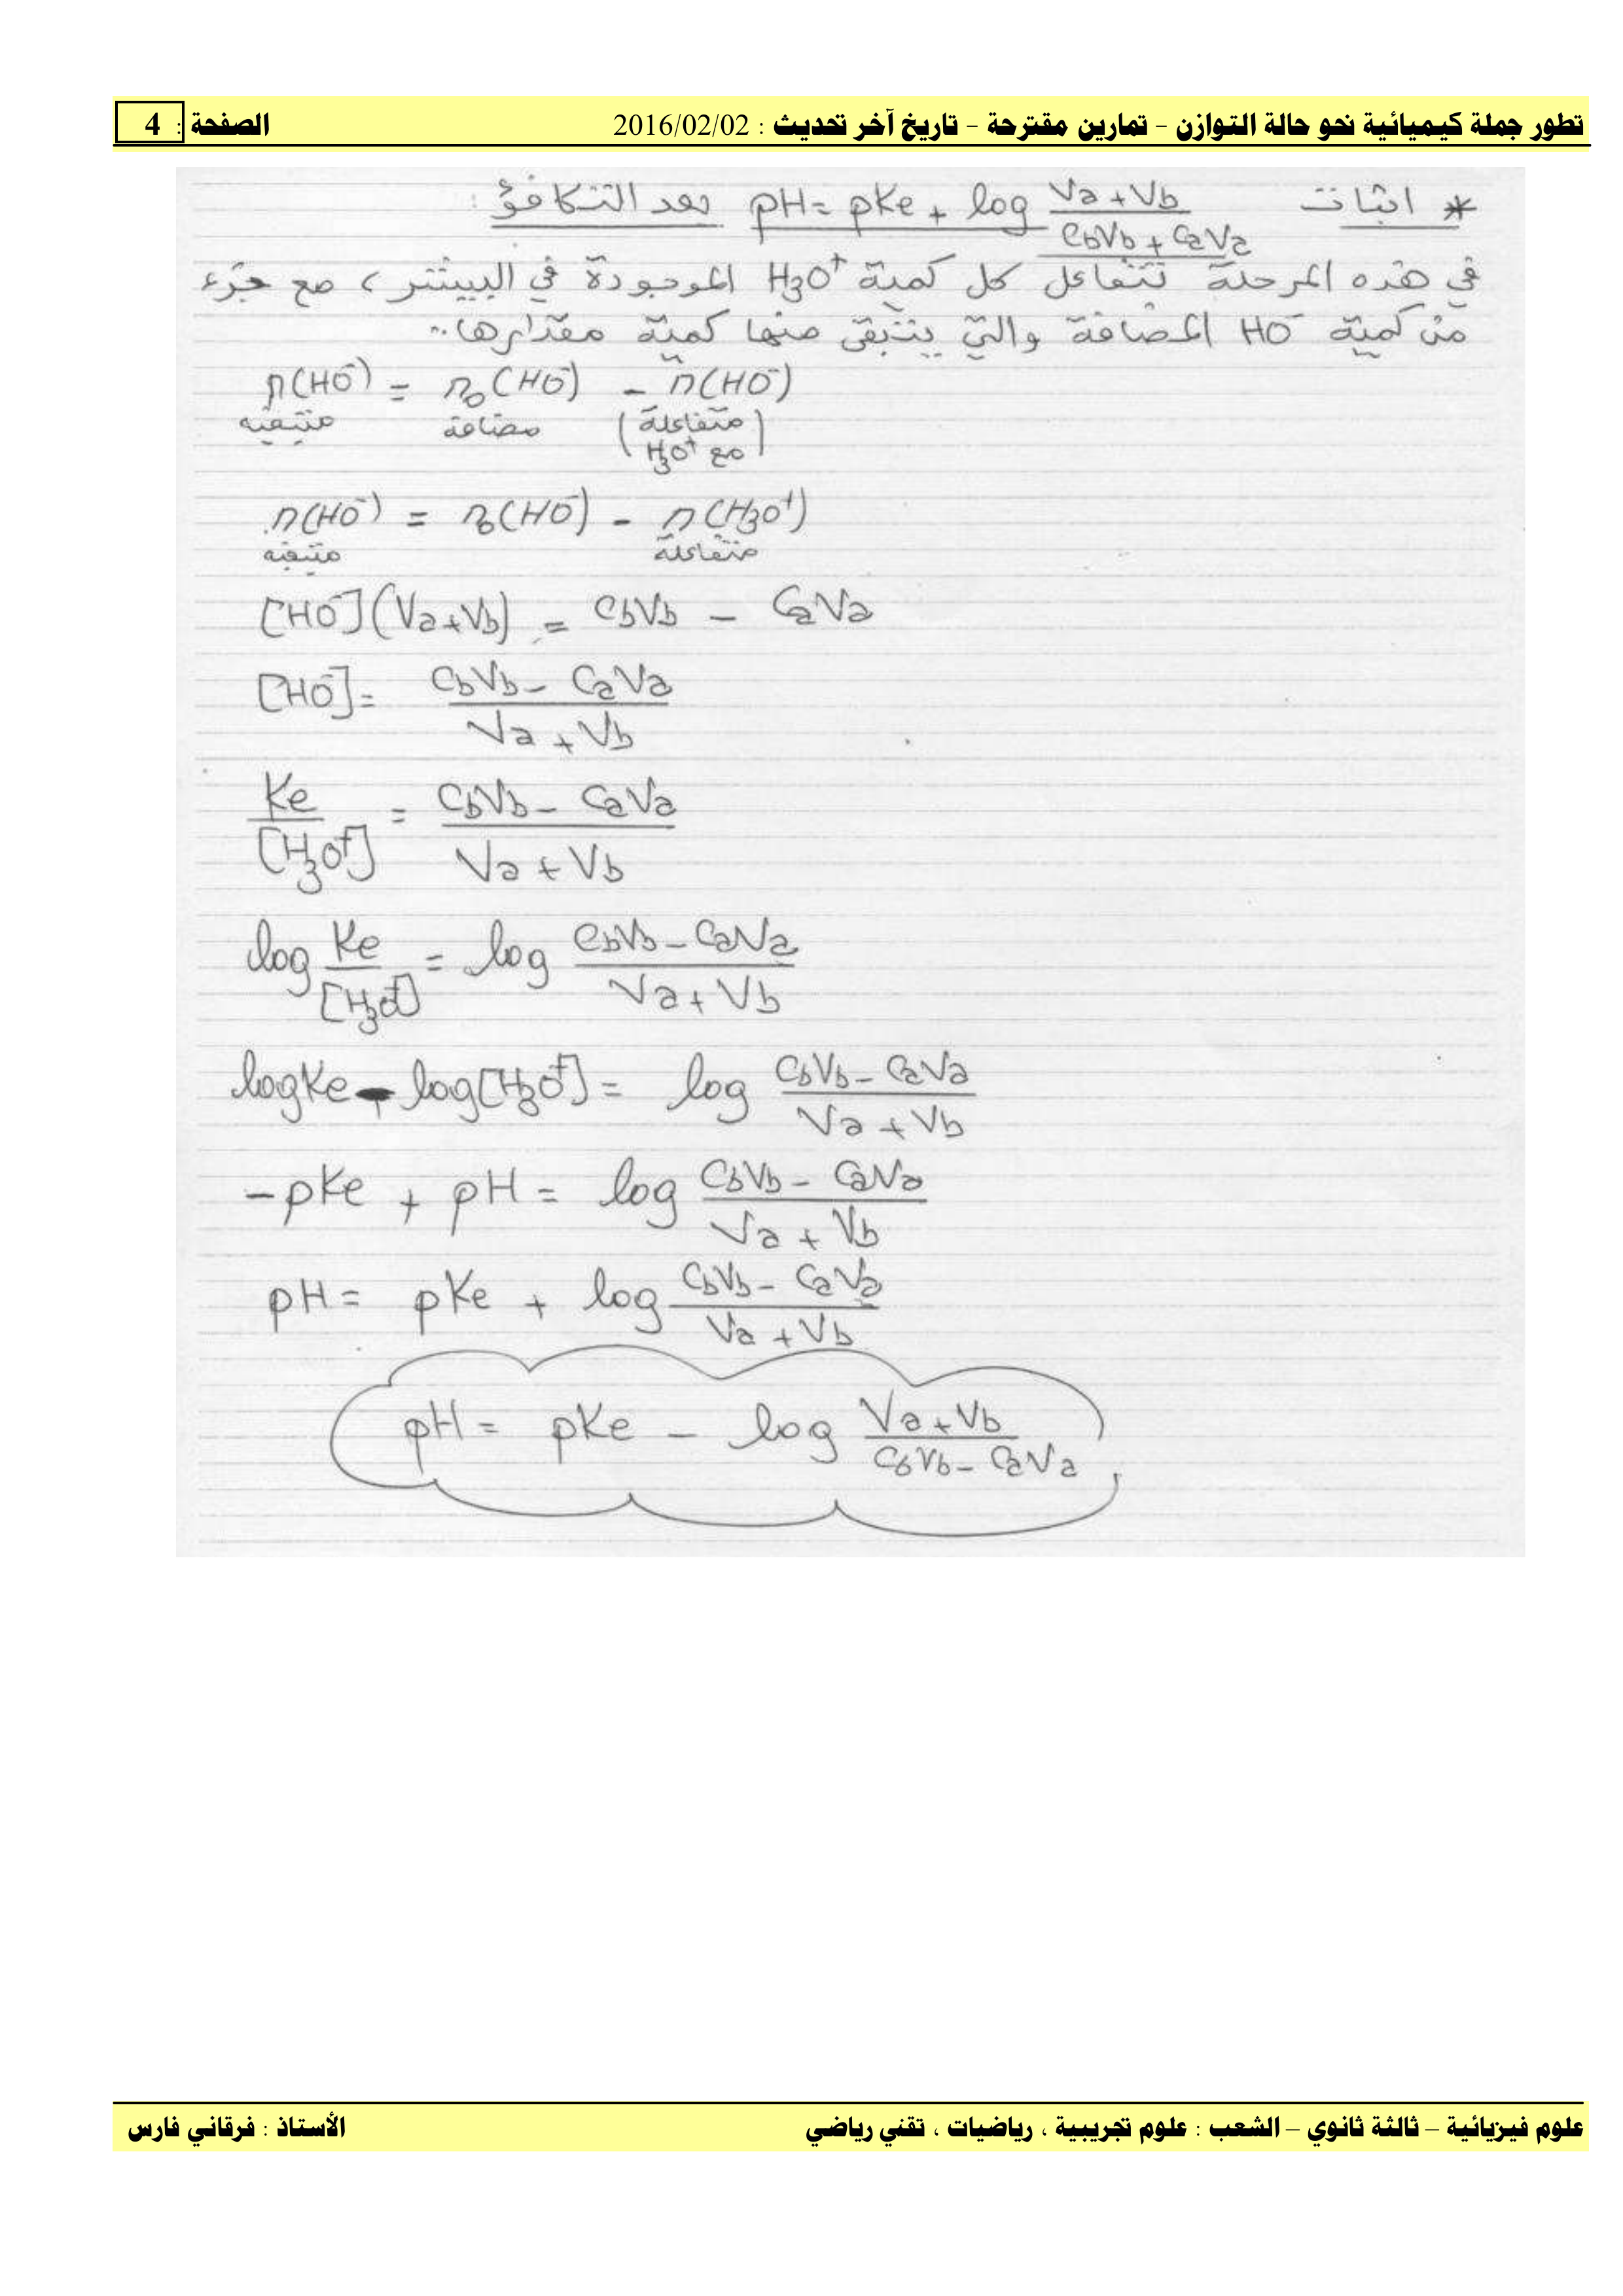 تطور جملة كيميائية نحو حالة التوازن – تمارين مقترحة – تاريخ آخر تحديث : 2016/02/02 الصفحة : 4
* اثبات pH = pKe + log (Va + Vb) / (CbVb + CaVa) بعد التكافؤ :
في هذه المرحلة تتفاعل كل كمية H3O+ الموجودة في البيشر ، مع جزء
من كمية HO- المضافة والتي يتبقى منها كمية مقدارها..
n(HO-) = n0(HO-) - n(HO-)
متبقية مضافة (متفاعلة مع H3O+)
n(HO-) = n0(HO-) - n(H3O+)
متبقية متفاعلة
[HO-](Va + Vb) = CbVb - CaVa
[HO-] = (CbVb - CaVa) / (Va + Vb)
Ke / [H3O+] = (CbVb - CaVa) / (Va + Vb)
log Ke / [H3O+] = log (CbVb - CaVa) / (Va + Vb)
logKe - log[H3O+] = log (CbVb - CaVa) / (Va + Vb)
-pKe + pH = log (CbVb - CaVa) / (Va + Vb)
pH = pKe + log (CbVb - CaVa) / (Va + Vb)
pH = pKe - log (Va + Vb) / (CbVb - CaVa)
علوم فيزيائية – ثالثة ثانوي – الشعب : علوم تجريبية ، رياضيات ، تقني رياضي الأستاذ : فرقاني فارس